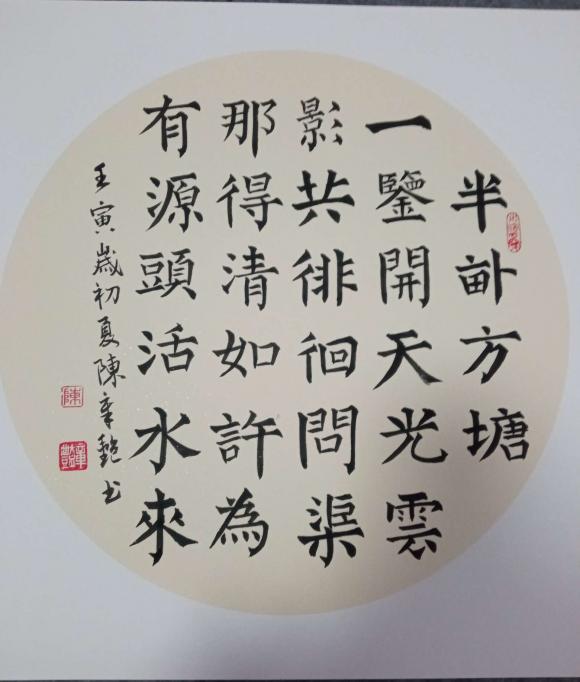 半畝方塘
一鑒開天光雲
影共徘徊問渠
那得清如許為
有源頭活水來
壬寅歲初夏陳章艷书
陳